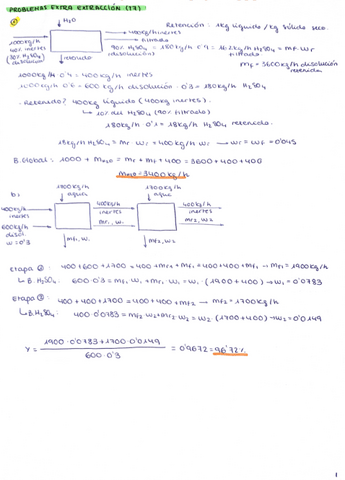 PROBLEMAS EXTRA EXTRACCIÓN (17)
H2O
Retención: 1kg líquido/kg sólido seco.
1000kg/h
40% inertes
(30% H2SO4)
disolución
400kg/h inertes
filtrado
90% H2SO4 = 180kg/h · 0'9 = 162kg/h H2SO4 = mf · wf
(disolución) filtrado
mf = 3600kg/h disolución
retenida
1000kg/h · 0'4 = 400kg/h inertes
1000kg/h · 0'6 = 600 kg/h disolución · 0'3 = 180kg/h H2SO4
- Retenido? 400kg líquido (400kg inertes).
10% del H2SO4 (90% filtrado)
180kg/h · 0'1 = 18kg/h H2SO4 retenida.
18kg/h H2SO4 = mr · wr = 400kg/h · wr → wr = wf = 0'045
B. Global: 1000 + mH2O = mr + mf + 400 = 3600 + 400 + 400
mH2O = 3400kg/h
b:
1700kg/h
agua
1700kg/h
agua
400kg/h
inertes
600kg/h
disol.
w = 0'3
400kg/h
inertes
mr1, w1
400kg/h
inertes
mr2, w2
mf1, w1
mf2, w2
Etapa ①: 400 + 600 + 1700 = 400 + mr1 + mf1 = 400 + 400 + mf1 → mf1 = 1900kg/h
B. H2SO4: 600 · 0'3 = mf1 · w1 + mr1 · w1 = w1 · (1900 + 400) → w1 = 0'0783
Etapa ②: 400 + 400 + 1700 = 400 + 400 + mf2 → mf2 = 1700kg/h
B. H2SO4: 400 · 0'0783 = mf2 · w2 + mr2 · w2 = w2 · (1700 + 400) → w2 = 0'0149
Y = 1900 · 0'0783 + 1700 · 0'0149 / 600 · 0'3 = 0'9672 = 96'72%